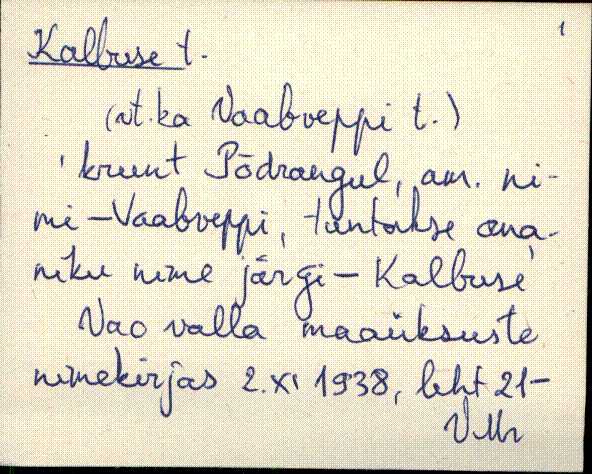 1
Kalbuse t.
(vt. ka Vaabveppi t.)
'krunt Põdrangul, am. ni-
mi – Vaabveppi, tuntakse oma-
niku nime järgi – Kalbuse
Vao valla maaüksuste
nimekirjas 2.XI 1938, leht 21–
VMr